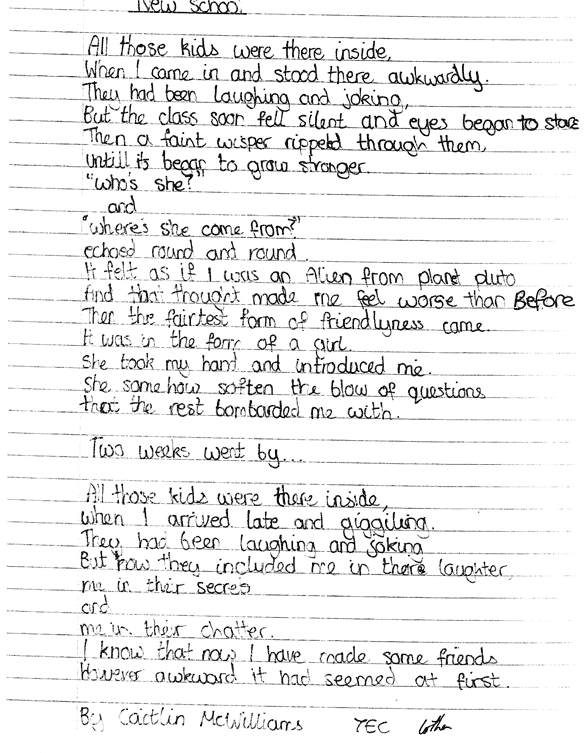 New School.
All those kids were there inside,
When I came in and stood there awkwardly.
They had been laughing and joking,
But the class soon fell silent and eyes began to stare
Then a faint wisper rippeld through them,
untill its began to grow stronger.
"who's she?"
and
"where's she come from?"
echoed round and round
It felt as if I was an Alien from planet pluto
And that thought made me feel worse than Before
Then the faintest form of friendlyness came.
It was in the form of a girl.
She took my hand and introduced me.
She somehow soften the blow of questions
that the rest bombarded me with.
Two weeks went by...
All those kids were there inside,
when I arrived late and giggiling.
They had been laughing and joking
But now they included me in there laughter,
me in their secrets
and
me in their chatter.
I know that now I have made some friends
However awkward it had seemed at first.
By Caitlin McWilliams YEC